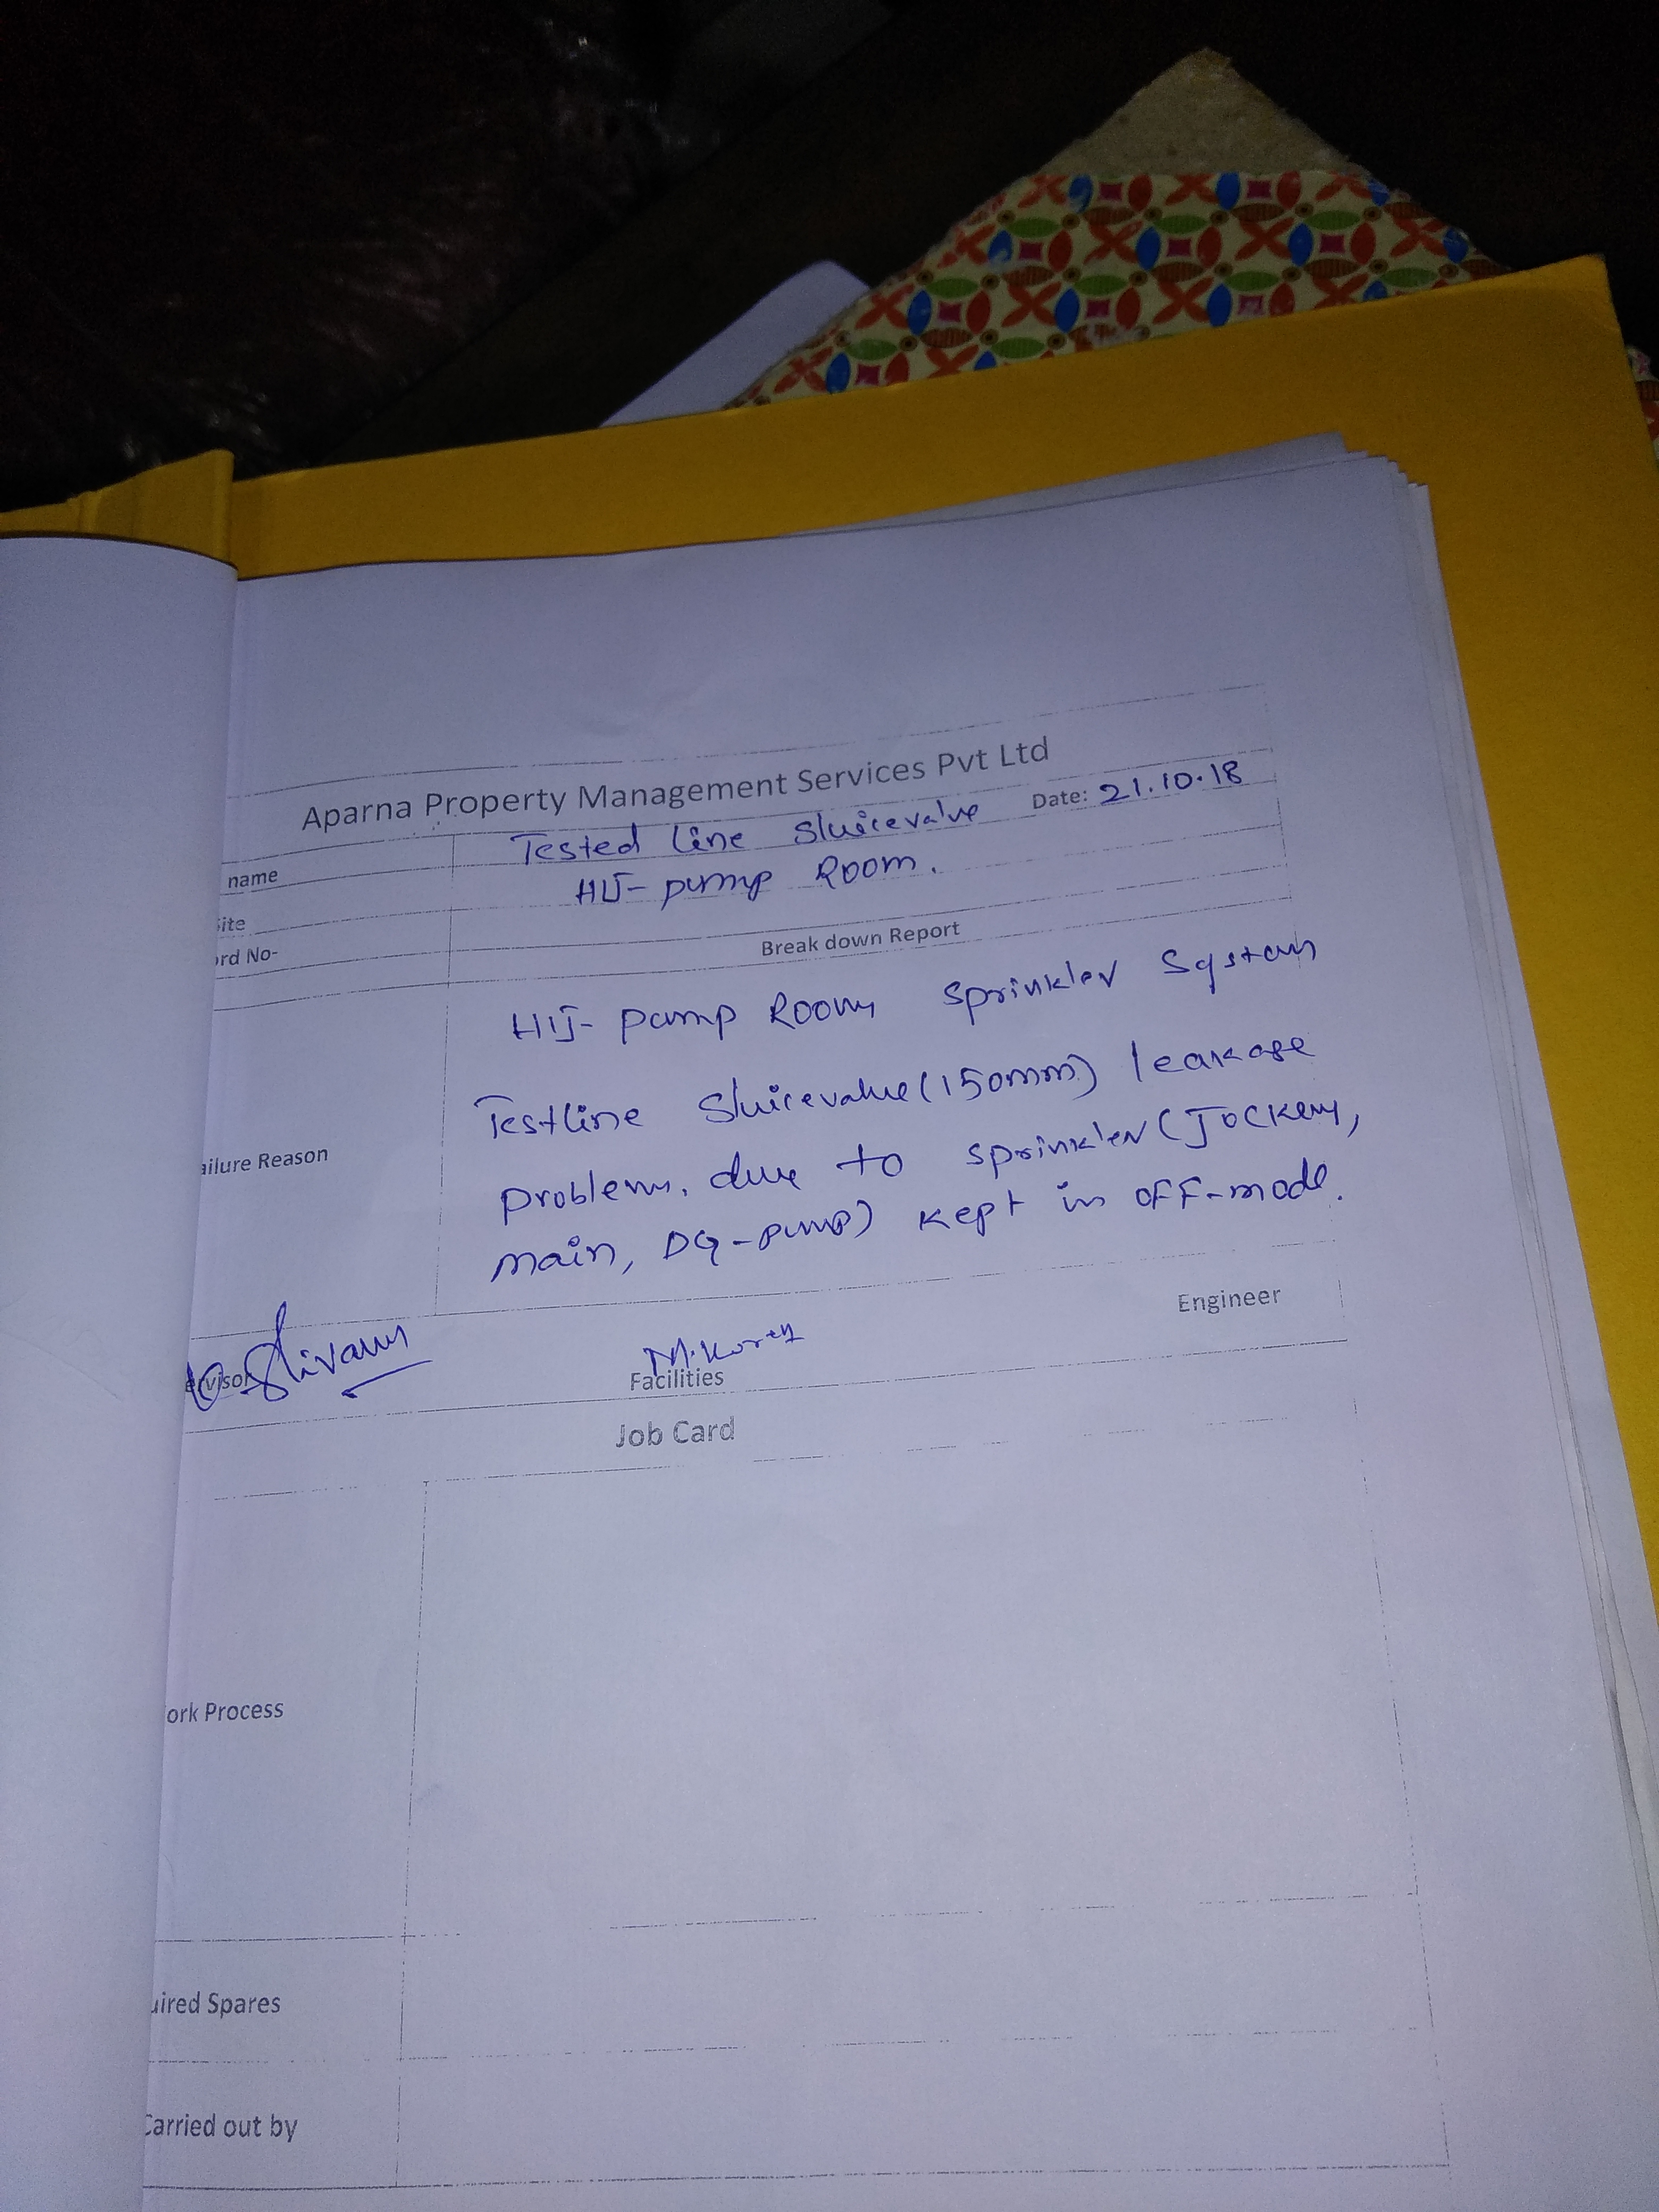 Aparna Property Management Services Pvt Ltd
name Tested line Sluicevalve Date: 21.10.18
ite HIJ- pump Room.
rd No-
Break down Report
HIJ- pump Room sprinkler System
Testline Sluicevalve (150mm) leakage
ailure Reason
problem, due to sprinkler (Jockey,
main, DG-pump) kept in OFF-mode.
Engineer
ervisor Shivam
Facilities
Job Card
ork Process
uired Spares
Carried out by